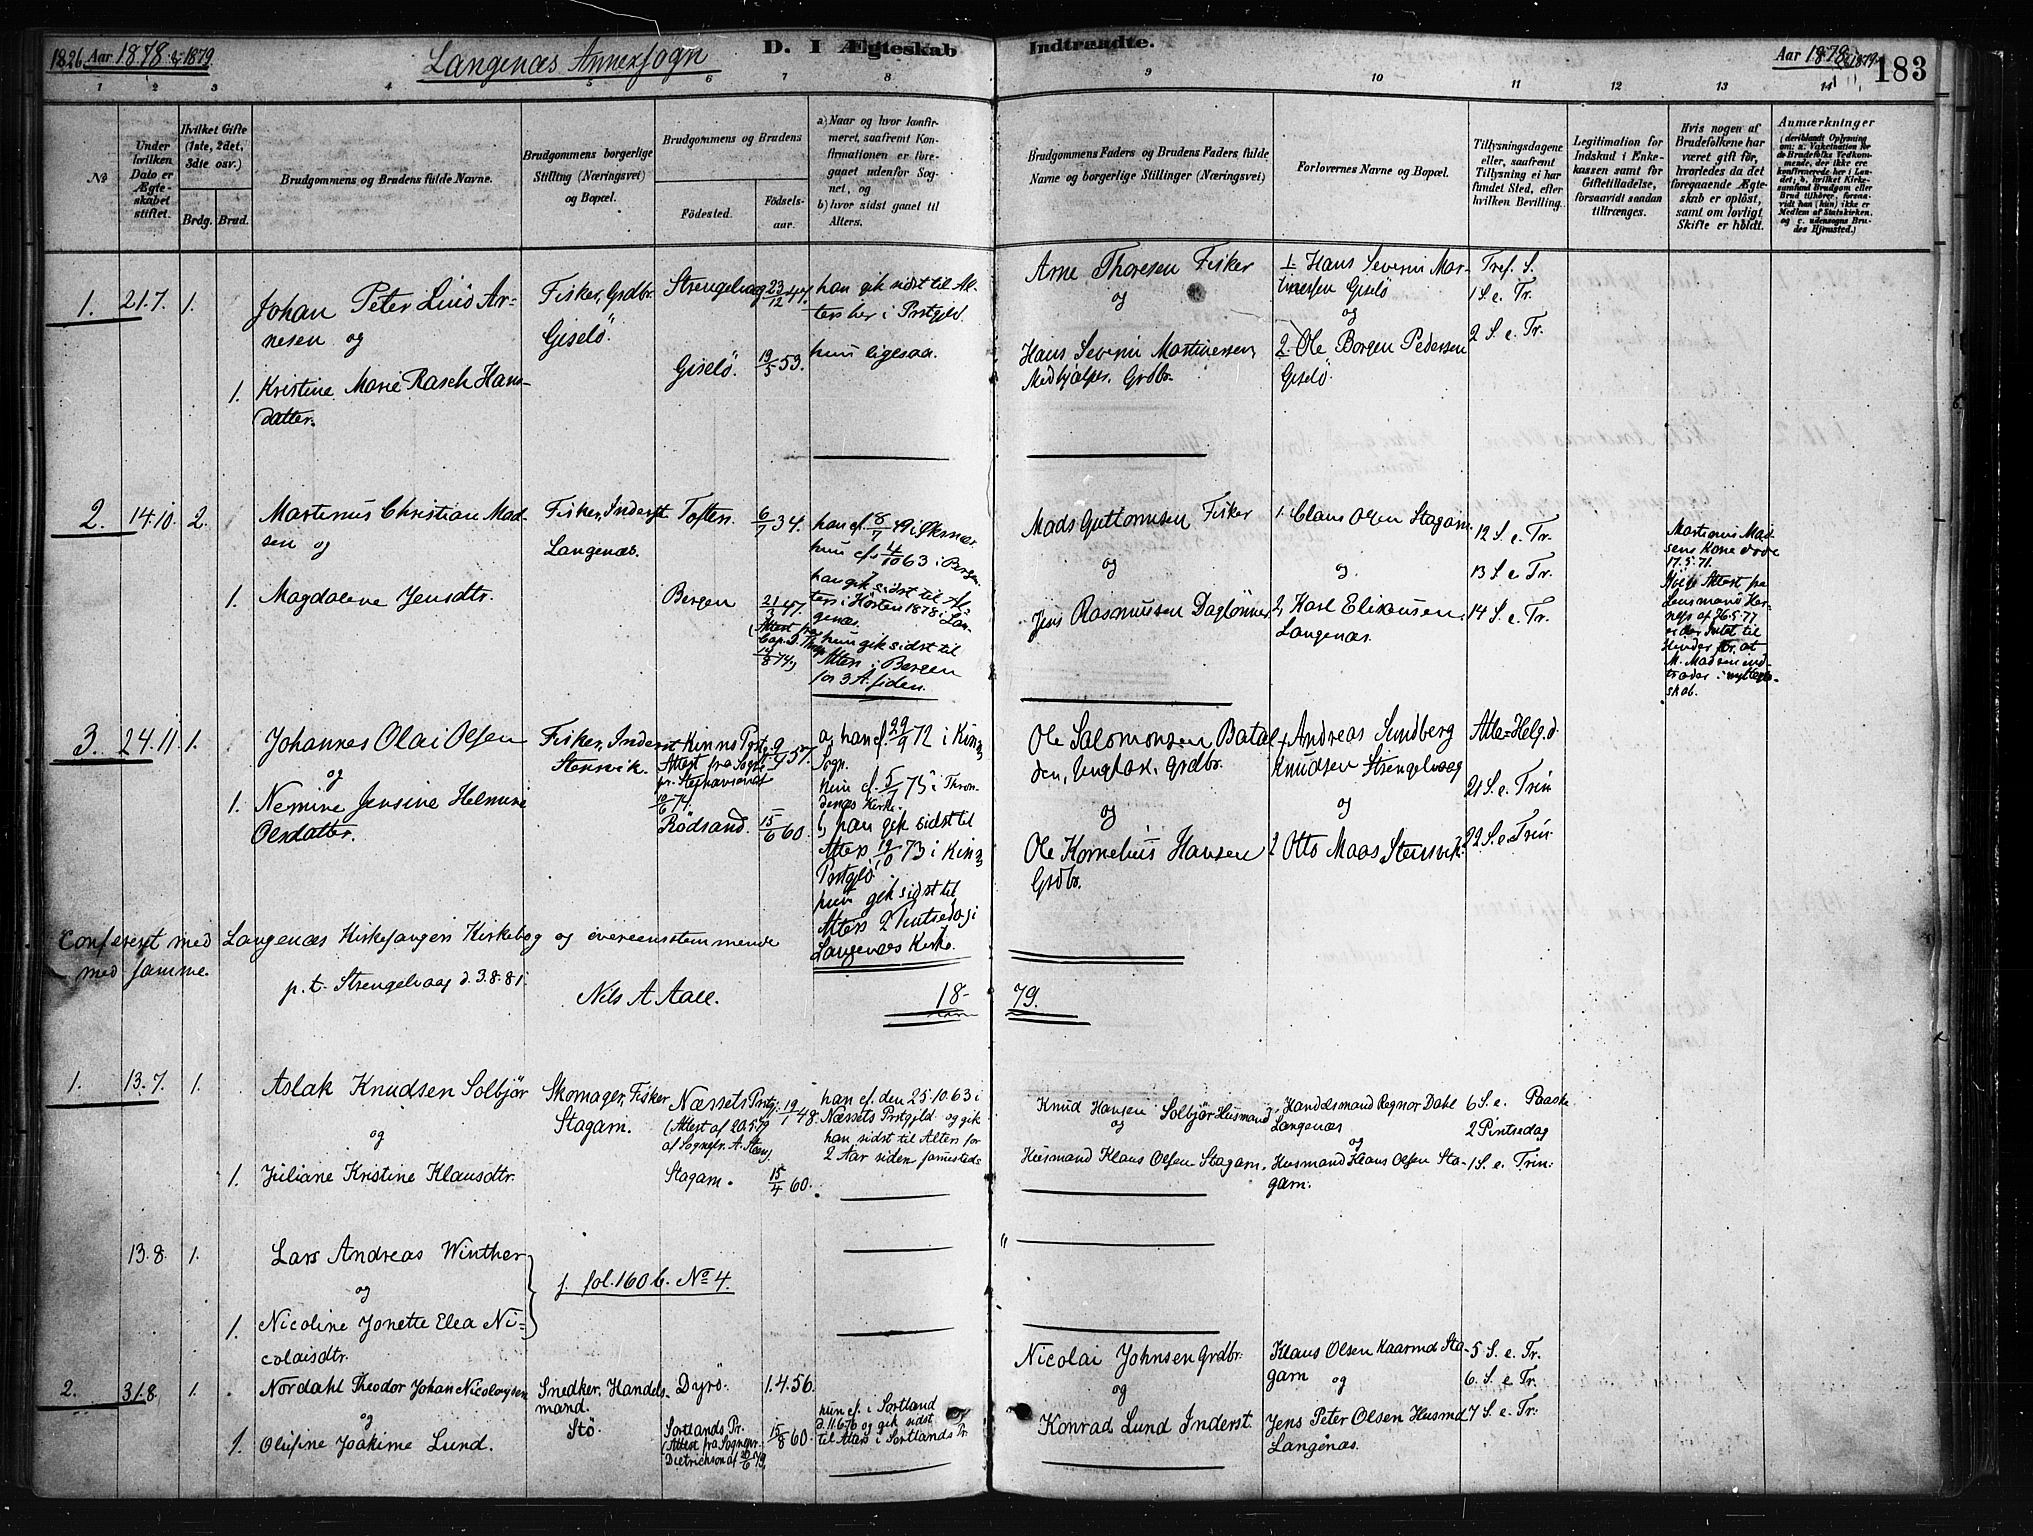 1826 Aar 1878 & 1879
Langenæs Annexsogn
D. I Ægteskab Indtraadte.
Aar 1878 & 1879
183
1 2 3 4 5 6 7 8 9 10 11 12 13 14
No
Under hvilken Dato er Ægteskabet stiftet.
Hvilket Gifte (1ste, 2det, 3die osv.)
Brdg. Brud.
Brudgommens og Brudens fulde Navne.
Brudgommens borgerlige Stilling (Næringsvei) og Bopæl.
Brudgommens og Brudens
Fødested.
Fødselsaar.
a) Naar og hvor konfirmeret, saafremt Konfirmationen er foregaaet udenfor Sognet, og
b) hvor sidst gaaet til Alters.
Brudgommens Faders og Brudens Faders fulde Navne og borgerlige Stillinger (Næringsvei)
Forlovernes Navne og Bopæl.
Tillysningsdagene eller, saafremt Tillysning ei har fundet Sted, efter hvilken Bevilling.
Legitimation for Indskud i Enkekassen samt for Giftetilladelse, forsaavidt saadan tiltrænges.
Hvis nogen af Brudefolkene har været gift før, hvorledes da det foregaaende Ægteskab er opløst, samt om lovligt Skifte er holdt.
Anmærkninger (deriblandt Oplysning om: a. Vaccination for de Brudefolks Vedkommende, der ikke ere konfirmerede her i Landet; b. hvilket Kirkesamfund Brudgom eller Brud tilhører, forsaavidt han (hun) ikke er Medlem af Statskirken, og c. udensogns Brudes Hjemsted.)
1. 21.7. 1.
Johan Peter Lind Arnesen og
1. Kristine Marie Rasch Hansdatter.
Fisker, Grdbr. Giselö.
Strengelvaag 23/12 47.
Giselö. 19/5 53.
han gik sidst til Alters her i Prstgjld.
hun ligesaa.
Arne Thoresen Fisker
og
Hans Severin Martinessen, Medhjælper, Grdbr.
1. Hans Severin Martinessen Giselö
og
2. Ole Borgen Pedersen Giselö.
Tref. S.
1 S. e. Tr.
2 S. e. Tr.
2. 14.10. 2.
Martinus Christian Madsen og
1. Magdalene Jensdtr.
Fisker, Inderst Langenæs.
Toften. 6/7 34.
Bergen 21/3 47.
han cf. 8/7 49 i Øksnæs.
hun cf. 4/10 63 i Bergen.
han gik sidst til Alters i Hösten 1878 i Langenæs.
hun gik sidst til Alters i Bergen for 3 A. siden.
Mads Guttormsen Fisker
og
Jens Rasmussen Daglönner
1. Claus Olsen Stagam.
og.
2, Karl Eliassen. Langenæs.
12 S. e. Tr.
13 S. e. Tr.
14 S. e. Tr.
Martinus Madsens Kone döde 17.5.71.
Ifölge Attest fra Lensmand af 26.5.77 er der Intet til Hinder for at M. Madsen indtræder i nyt Ægteskab.
3. 24.11. 1.
Johannes Olai Olsen
og
1. Nemine Jensine Helmine Olsdatter.
Fisker, Inderst Steinvik.
Kinns Prstg. 9/4 57.
Rödsand. 15/6 60.
a, han cf. 29/9 72 i Kinns Sogn.
hun cf. 5/7 75 i Throndenæs Kirke.
b, han gik sidst til Alters 19/10 73 i Kinns Prstgjld.
hun gik sidst til Alters 2 Pintsedag i Langenæs Kirke.
Ole Salomonsen Bataldden, Ungkar, Grdbr.
og
Ole Kornelius Hansen Grdbr.
1 Andreas Sundberg Knudsen Strengelvaag
og
2 Otto Maas Steinvik.
Alle Helg. d.
21 S. e. Trin
22 S. e. Trin.
Confereret med Langenæs Kirkesangers Kirkebog og overeensstemmende
med samme.
p. t. Strengelvaag d. 3.8.81.
Nils A Aall.
18- 79.
1. 13.7. 1.
Aslak Knudsen Solbjör
og
1. Juliane Kristine Klausdtr.
Skomager, Fisker Stagam.
Næssets Prstgj. 19/1 48.
(Attest af 20.5.79 af Sognepr. A. Steen)
Stagam. 15/4 60.
han cf. den 25.10.63 i Næssets Prstgjld. og gik han sidst til Alters for 2 Aar siden sammesteds
Knud Hansen Solbjör Husmand,
og
Husmand Klaus Olsen Stagam.
Handelsmand Regnor Dahl Langenæs
og
Husmand Klaus Olsen Stagam.
6 S. e. Paaske
2 Pintsedag
1 S. e. Trin:
13.8. 1.
Lars Andreas Winther
og
1. Nicoline Jonette Elea Nicolaisdtr.
f. fol. 160 b. No 4.
2. 31.8. 1.
Nordahl Theodor Johan Nicolaysen
og
1. Olufine Joakime Lund.
Snedker, Handelsmand. Stö.
Dyrö. 1.4.56.
Sortlands Pr. 15/8 60.
(Attest fra Sognepr. Dietrichson af 20/6 79)
hun cf. i Sortland d. 11.6.76 og gik sidst til Alters i Sortlands Pr
Nicolai Johnsen Grdbr.
og
Konrad Lund Inderst.
Klaus Olsen Kaarmd Stagam og
Jens Peter Olsen Husmd Langenæs.
5 S. e. Tr.
6. S. e. Tr.
7 S. e. Tr.